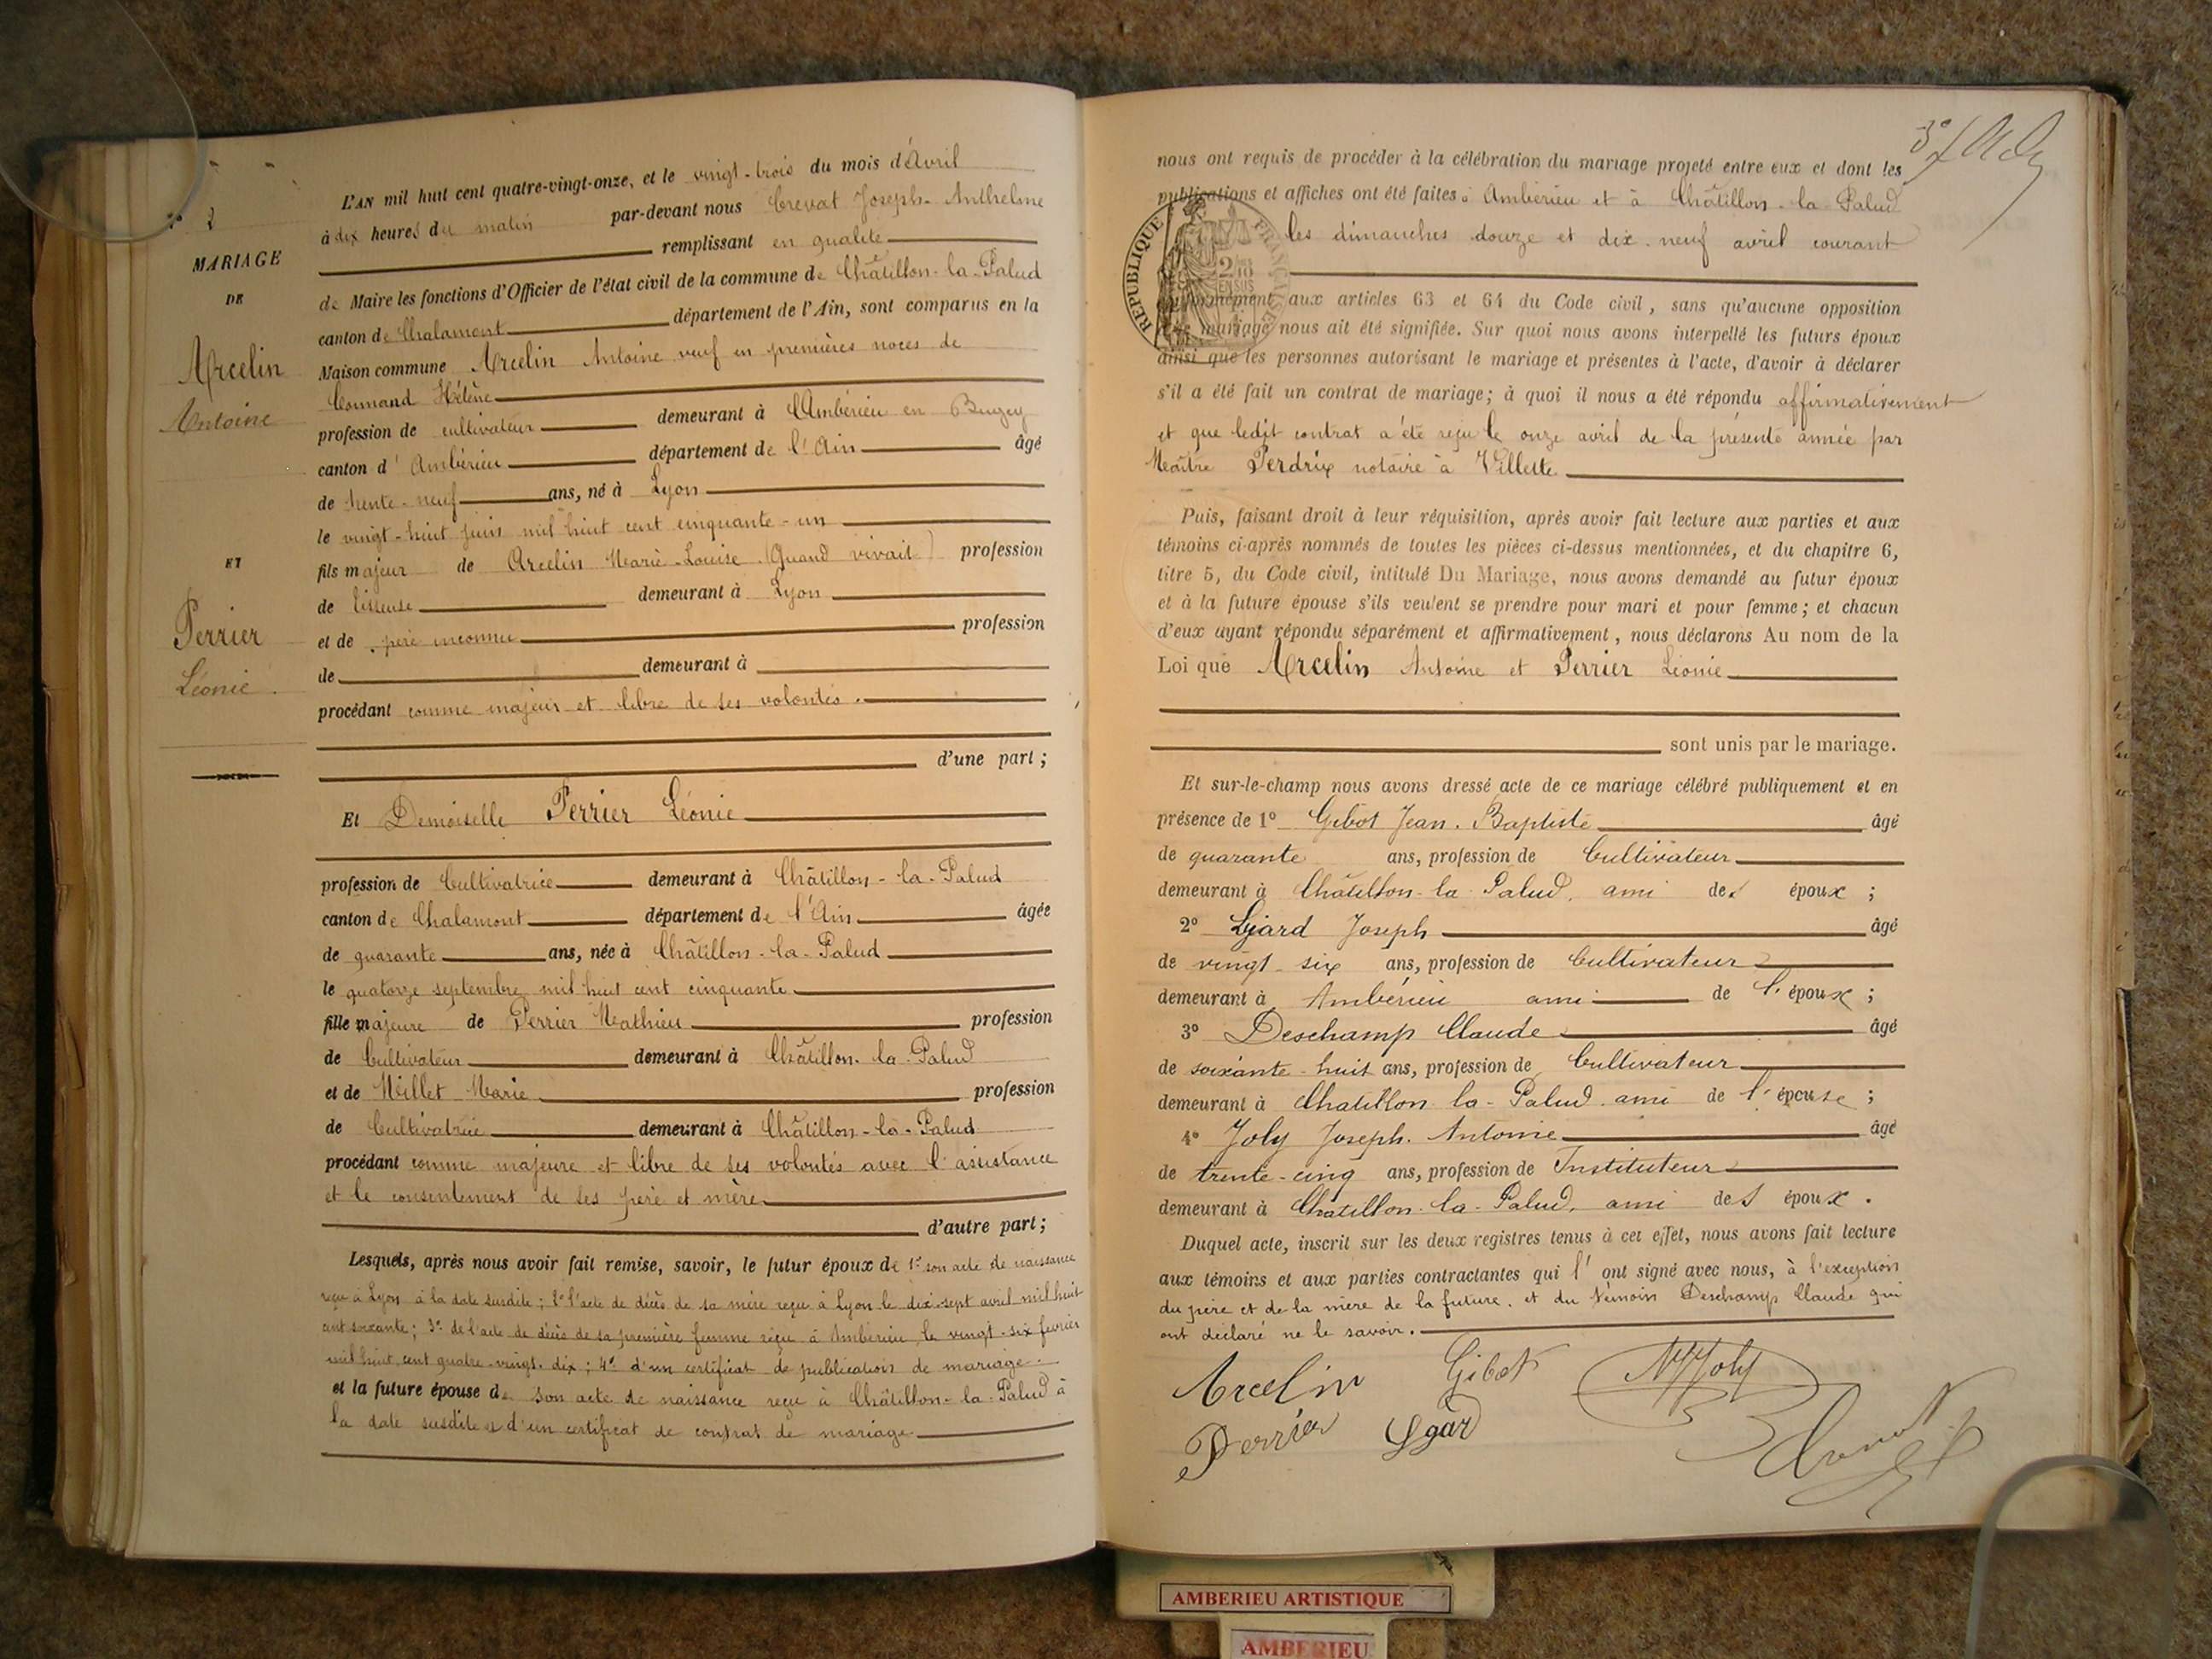 MARIAGE
DE
Arcelin
Antoine
ET
Perrier
Léonie
L'AN mil huit cent quatre-vingt-onze, et le vingt-trois du mois d'Avril
à dix heures du matin par-devant nous Crevat Joseph-Anthelme
remplissant en qualité
de Maire les fonctions d'Officier de l'état civil de la commune de Châtillon-la-Palud
canton de Chalamont département de l'Ain, sont comparus en la
Maison commune Arcelin Antoine veuf en premières noces de
Hélène
profession de cultivateur demeurant à Ambérieu en Bugey
canton d'Ambérieu département de l'Ain âgé
de trente-neuf ans, né à Lyon
le vingt-huit juin mil huit cent cinquante-un
fils majeur de Arcelin Marie-Louise (Quand vivait) profession
de tisseuse demeurant à Lyon
et de père inconnu profession
de demeurant à
procédant comme majeur et libre de ses volontés.
d'une part ;
Et Demoiselle Perrier Léonie
profession de Cultivatrice demeurant à Châtillon-la-Palud
canton de Chalamont département de l'Ain âgée
de quarante ans, née à Châtillon-la-Palud
le quatorze septembre mil huit cent cinquante
fille majeure de Perrier Mathieu profession
de Cultivateur demeurant à Châtillon-la-Palud
et de Millet Marie profession
de Cultivatrice demeurant à Châtillon-la-Palud
procédant comme majeure et libre de ses volontés avec l'assistance
et le consentement de ses père et mère
d'autre part ;
Lesquels, après nous avoir fait remise, savoir, le futur époux de 1° son acte de naissance
reçu à Lyon à la date susdite ; 2° l'acte de décès de sa mère reçu à Lyon le dix-sept avril mil huit
cent soixante ; 3° de l'acte de décès de sa première femme reçu à Ambérieu le vingt-six février
mil huit cent quatre-vingt-dix ; 4° d'un certificat de publication de mariage.
et la future épouse de son acte de naissance reçu à Châtillon-la-Palud à
la date susdite et d'un certificat de contrat de mariage
nous ont requis de procéder à la célébration du mariage projeté entre eux et dont les
publications et affiches ont été faites à Ambérieu et à Châtillon-la-Palud
les dimanches douze et dix-neuf avril courant
RÉPUBLIQUE FRANÇAISE
conformément aux articles 63 et 64 du Code civil, sans qu'aucune opposition
mariage nous ait été signifiée. Sur quoi nous avons interpellé les futurs époux
ainsi que les personnes autorisant le mariage et présentes à l'acte, d'avoir à déclarer
s'il a été fait un contrat de mariage; à quoi il nous a été répondu affirmativement
et que ledit contrat a été reçu le onze avril de la présente année par
Maître Perdrix notaire à Villette
Puis, faisant droit à leur réquisition, après avoir fait lecture aux parties et aux
témoins ci-après nommés de toutes les pièces ci-dessus mentionnées, et du chapitre 6,
titre 5, du Code civil, intitulé Du Mariage, nous avons demandé au futur époux
et à la future épouse s'ils veulent se prendre pour mari et pour femme ; et chacun
d'eux ayant répondu séparément et affirmativement, nous déclarons Au nom de la
Loi que Arcelin Antoine et Perrier Léonie
sont unis par le mariage.
Et sur-le-champ nous avons dressé acte de ce mariage célébré publiquement et en
présence de 1° Gibot Jean-Baptiste âgé
de quarante ans, profession de Cultivateur
demeurant à Châtillon-la-Palud, ami des époux ;
2° Joseph âgé
de vingt-six ans, profession de Cultivateur
demeurant à Ambérieu ami de l'époux ;
3° Deschamp Claude âgé
de soixante-huit ans, profession de Cultivateur
demeurant à Chatillon-la-Palud ami de l'épouse ;
4° Joly Joseph-Antoine âgé
de trente-cinq ans, profession de Instituteur
demeurant à Châtillon-la-Palud, ami des époux.
Duquel acte, inscrit sur les deux registres tenus à cet effet, nous avons fait lecture
aux témoins et aux parties contractantes qui l'ont signé avec nous, à l'exception
du père et de la mère de la future, et du témoin Deschamp Claude qui
ont déclaré ne le savoir.
Arcelin Gibot Joly
Perrier
AMBERIEU ARTISTIQUE
AMBERIEU